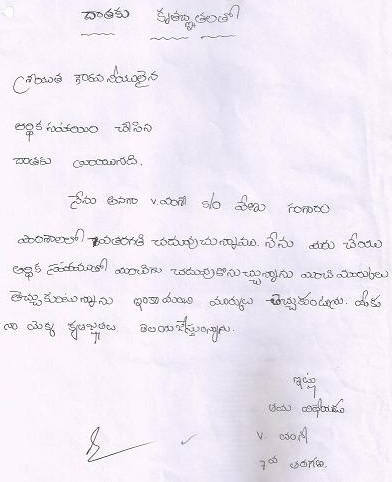 దాతకు కృతజ్ఞతలతో
శ్రీయుత గౌరవనీయులైన
ఆర్థిక సహాయం చేసిన
దాతకు వ్రాయునది.
నేను అనగా V. వంశీ S/O వేణు గంగారం
పాఠశాలలో 7వ తరగతి చదువుచున్నాను. నేను మీరు చేయు
ఆర్థిక సహాయంతో మంచిగా చదువుకొనుచున్నాను మంచి మార్కులు
తెచ్చుకుంటున్నాను ఇంకా మంచి మార్కులు తెచ్చుకుంటాను. మీకు
నా యొక్క కృతజ్ఞతలు తెలియజేస్తున్నాను.
ఇట్లు
తమ విధేయుడు
V. వంశీ
7వ తరగతి.